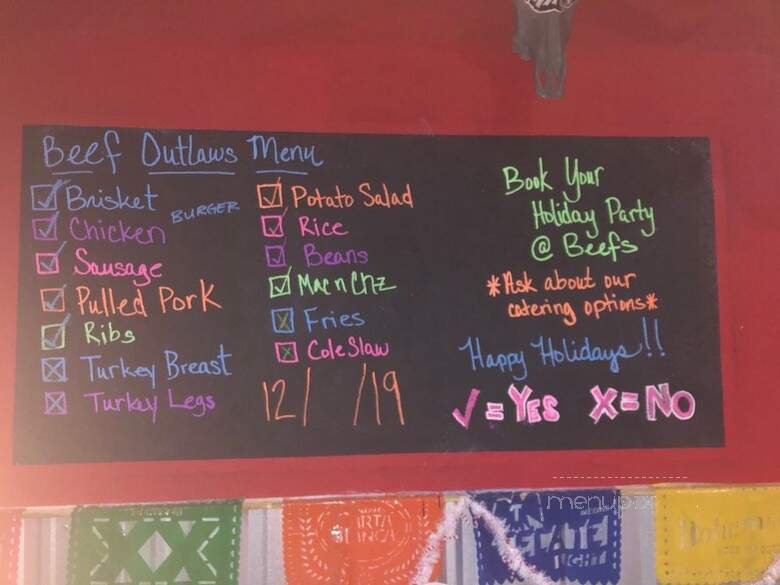 Beef Outlaws Menu
☑ Brisket
BURGER
☑ Chicken
☑ Sausage
☑ Pulled Pork
☑ Ribs
☒ Turkey Breast
☒ Turkey Legs
☑ Potato Salad
☑ Rice
☑ Beans
☑ Mac n Chz
☒ Fries
☒ Cole Slaw
12/ /19
Book Your
Holiday Party
@ Beefs
*Ask about our
catering options*
Happy Holidays!!
✓=YES X=NO
menupix
XX
CARTA
BLANCA
TECATE
LIGHT